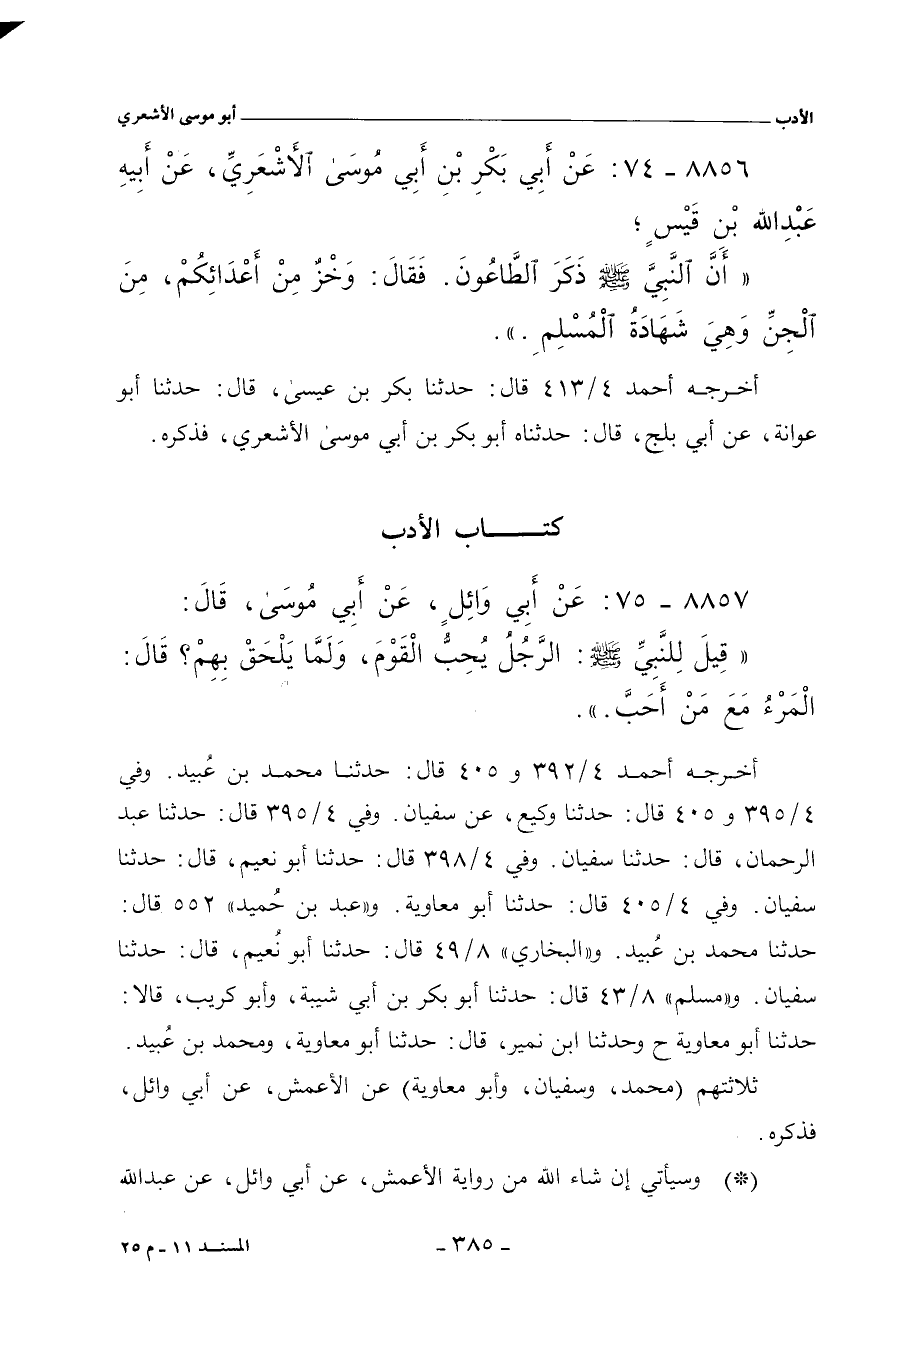 الأدب ــــــــــ أبو موسى الأشعري
٨٨٥٦ - ٧٤: عَنْ أَبِي بَكْرِ بْنِ أَبِي مُوسَىٰ ٱلْأَشْعَرِيِّ، عَنْ أَبِيهِ
عَبْدِالله بْنِ قَيْسٍ؛
« أَنَّ ٱلنَّبِيَّ ﷺ ذَكَرَ ٱلطَّاعُونَ. فَقَالَ: وَخْزٌ مِنْ أَعْدَائِكُمْ، مِنَ
ٱلْجِنِّ وَهِيَ شَهَادَةُ ٱلْمُسْلِمِ .».
أخرجه أحمد ٤١٣/٤ قال: حدثنا بكر بن عيسىٰ، قال: حدثنا أبو
عوانة، عن أبي بلج، قال: حدثناه أبو بكر بن أبي موسىٰ الأشعري، فذكره.
كتـــــاب الأدب
٨٨٥٧ - ٧٥: عَنْ أَبِي وَائِلٍ، عَنْ أَبِي مُوسَىٰ، قَالَ:
« قِيلَ لِلنَّبِيِّ ﷺ: الرَّجُلُ يُحِبُّ الْقَوْمَ، وَلَمَّا يَلْحَقْ بِهِمْ؟ قَالَ:
الْمَرْءُ مَعَ مَنْ أَحَبَّ.».
أخرجه أحمد ٣٩٢/٤ و ٤٠٥ قال: حدثنا محمد بن عُبيد. وفي
٣٩٥/٤ و ٤٠٥ قال: حدثنا وكيع، عن سفيان. وفي ٣٩٥/٤ قال: حدثنا عبد
الرحمان، قال: حدثنا سفيان. وفي ٣٩٨/٤ قال: حدثنا أبو نعيم، قال: حدثنا
سفيان. وفي ٤٠٥/٤ قال: حدثنا أبو معاوية. و«عبد بن حُميد» ٥٥٢ قال:
حدثنا محمد بن عُبيد. و«البخاري» ٤٩/٨ قال: حدثنا أبو نُعيم، قال: حدثنا
سفيان. و«مسلم» ٤٣/٨ قال: حدثنا أبو بكر بن أبي شيبة، وأبو كريب، قالا:
حدثنا أبو معاوية ح وحدثنا ابن نمير، قال: حدثنا أبو معاوية، ومحمد بن عُبيد.
ثلاثتهم (محمد، وسفيان، وأبو معاوية) عن الأعمش، عن أبي وائل،
فذكره.
(*) وسيأتي إن شاء الله من رواية الأعمش، عن أبي وائل، عن عبدالله
- ٣٨٥ -
المسند ١١ - م ٢٥